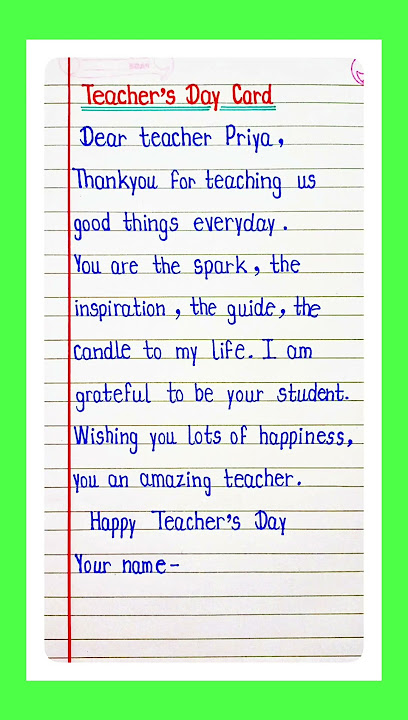 Teacher's Day Card
Dear teacher Priya,
Thankyou for teaching us
good things everyday.
You are the spark, the
inspiration, the guide, the
candle to my life. I am
grateful to be your student.
Wishing you lots of happiness,
you an amazing teacher.
Happy Teacher's Day
Your name-